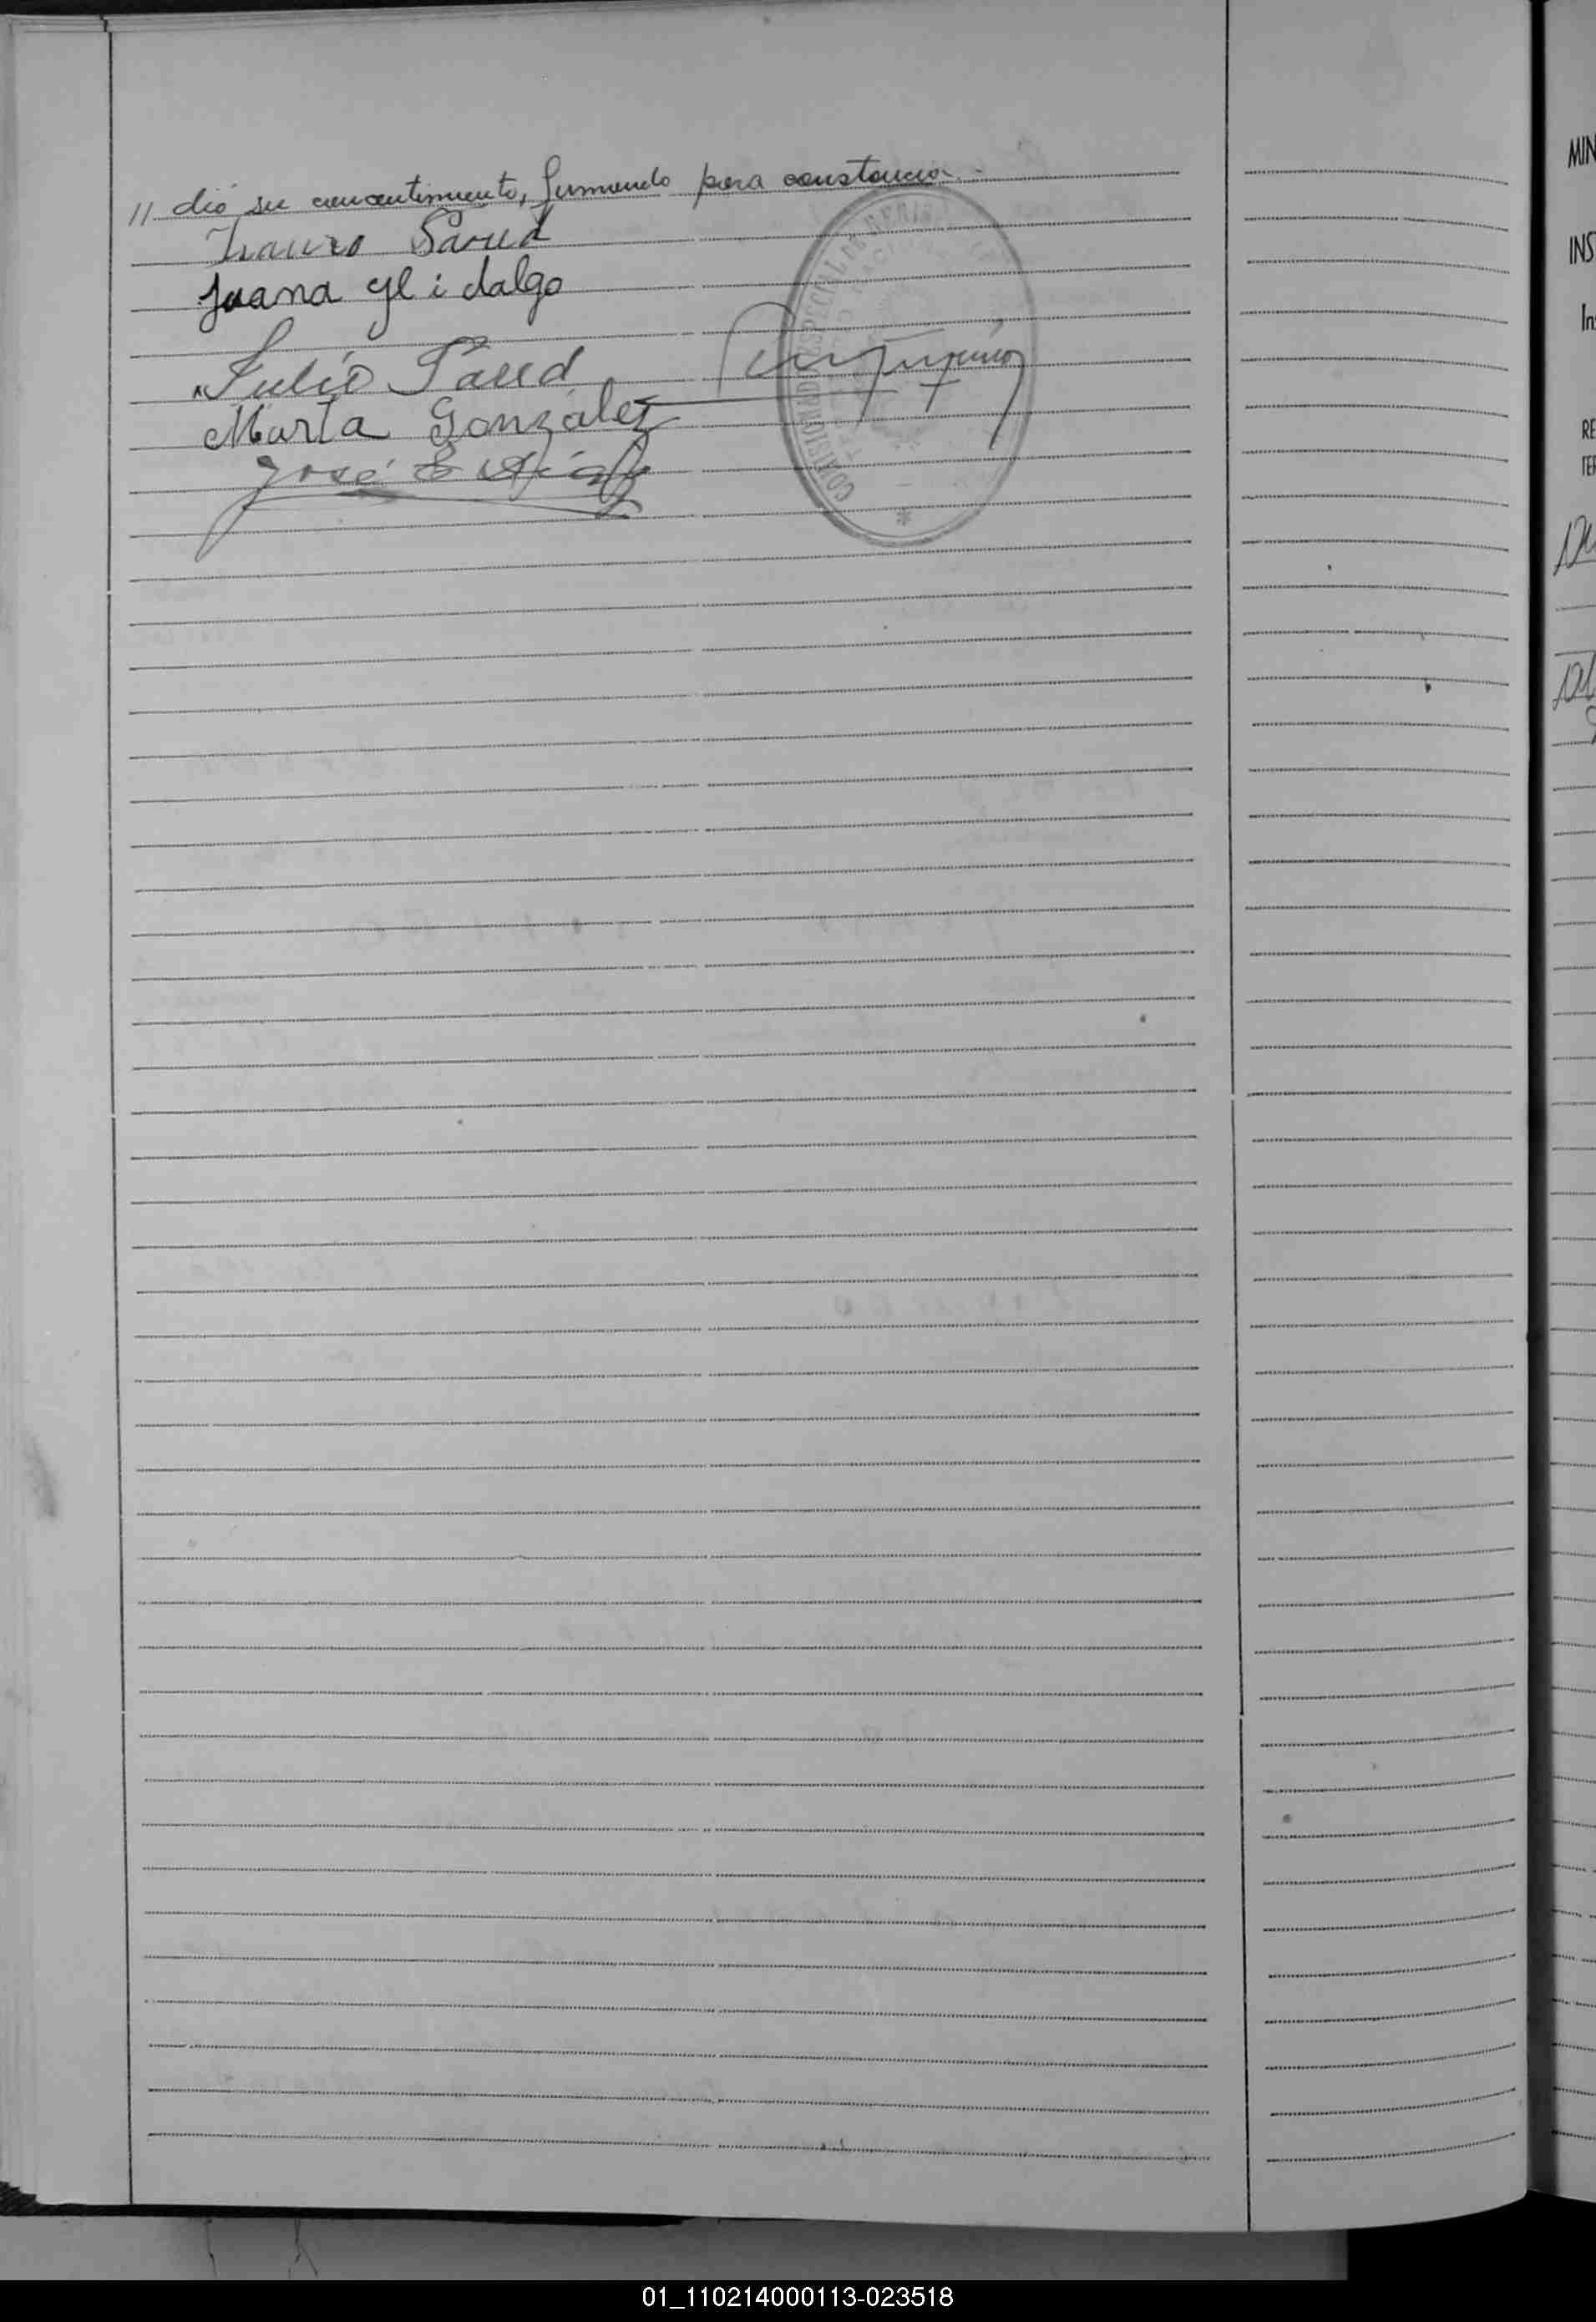 // dió su concentimiento, firmando para constancia.-
Saud
Juana Hidalgo
Julio Saud
María González
José E
COMISION ESPECIAL
MIN
INS
In
RE
TER
01_110214000113-023518